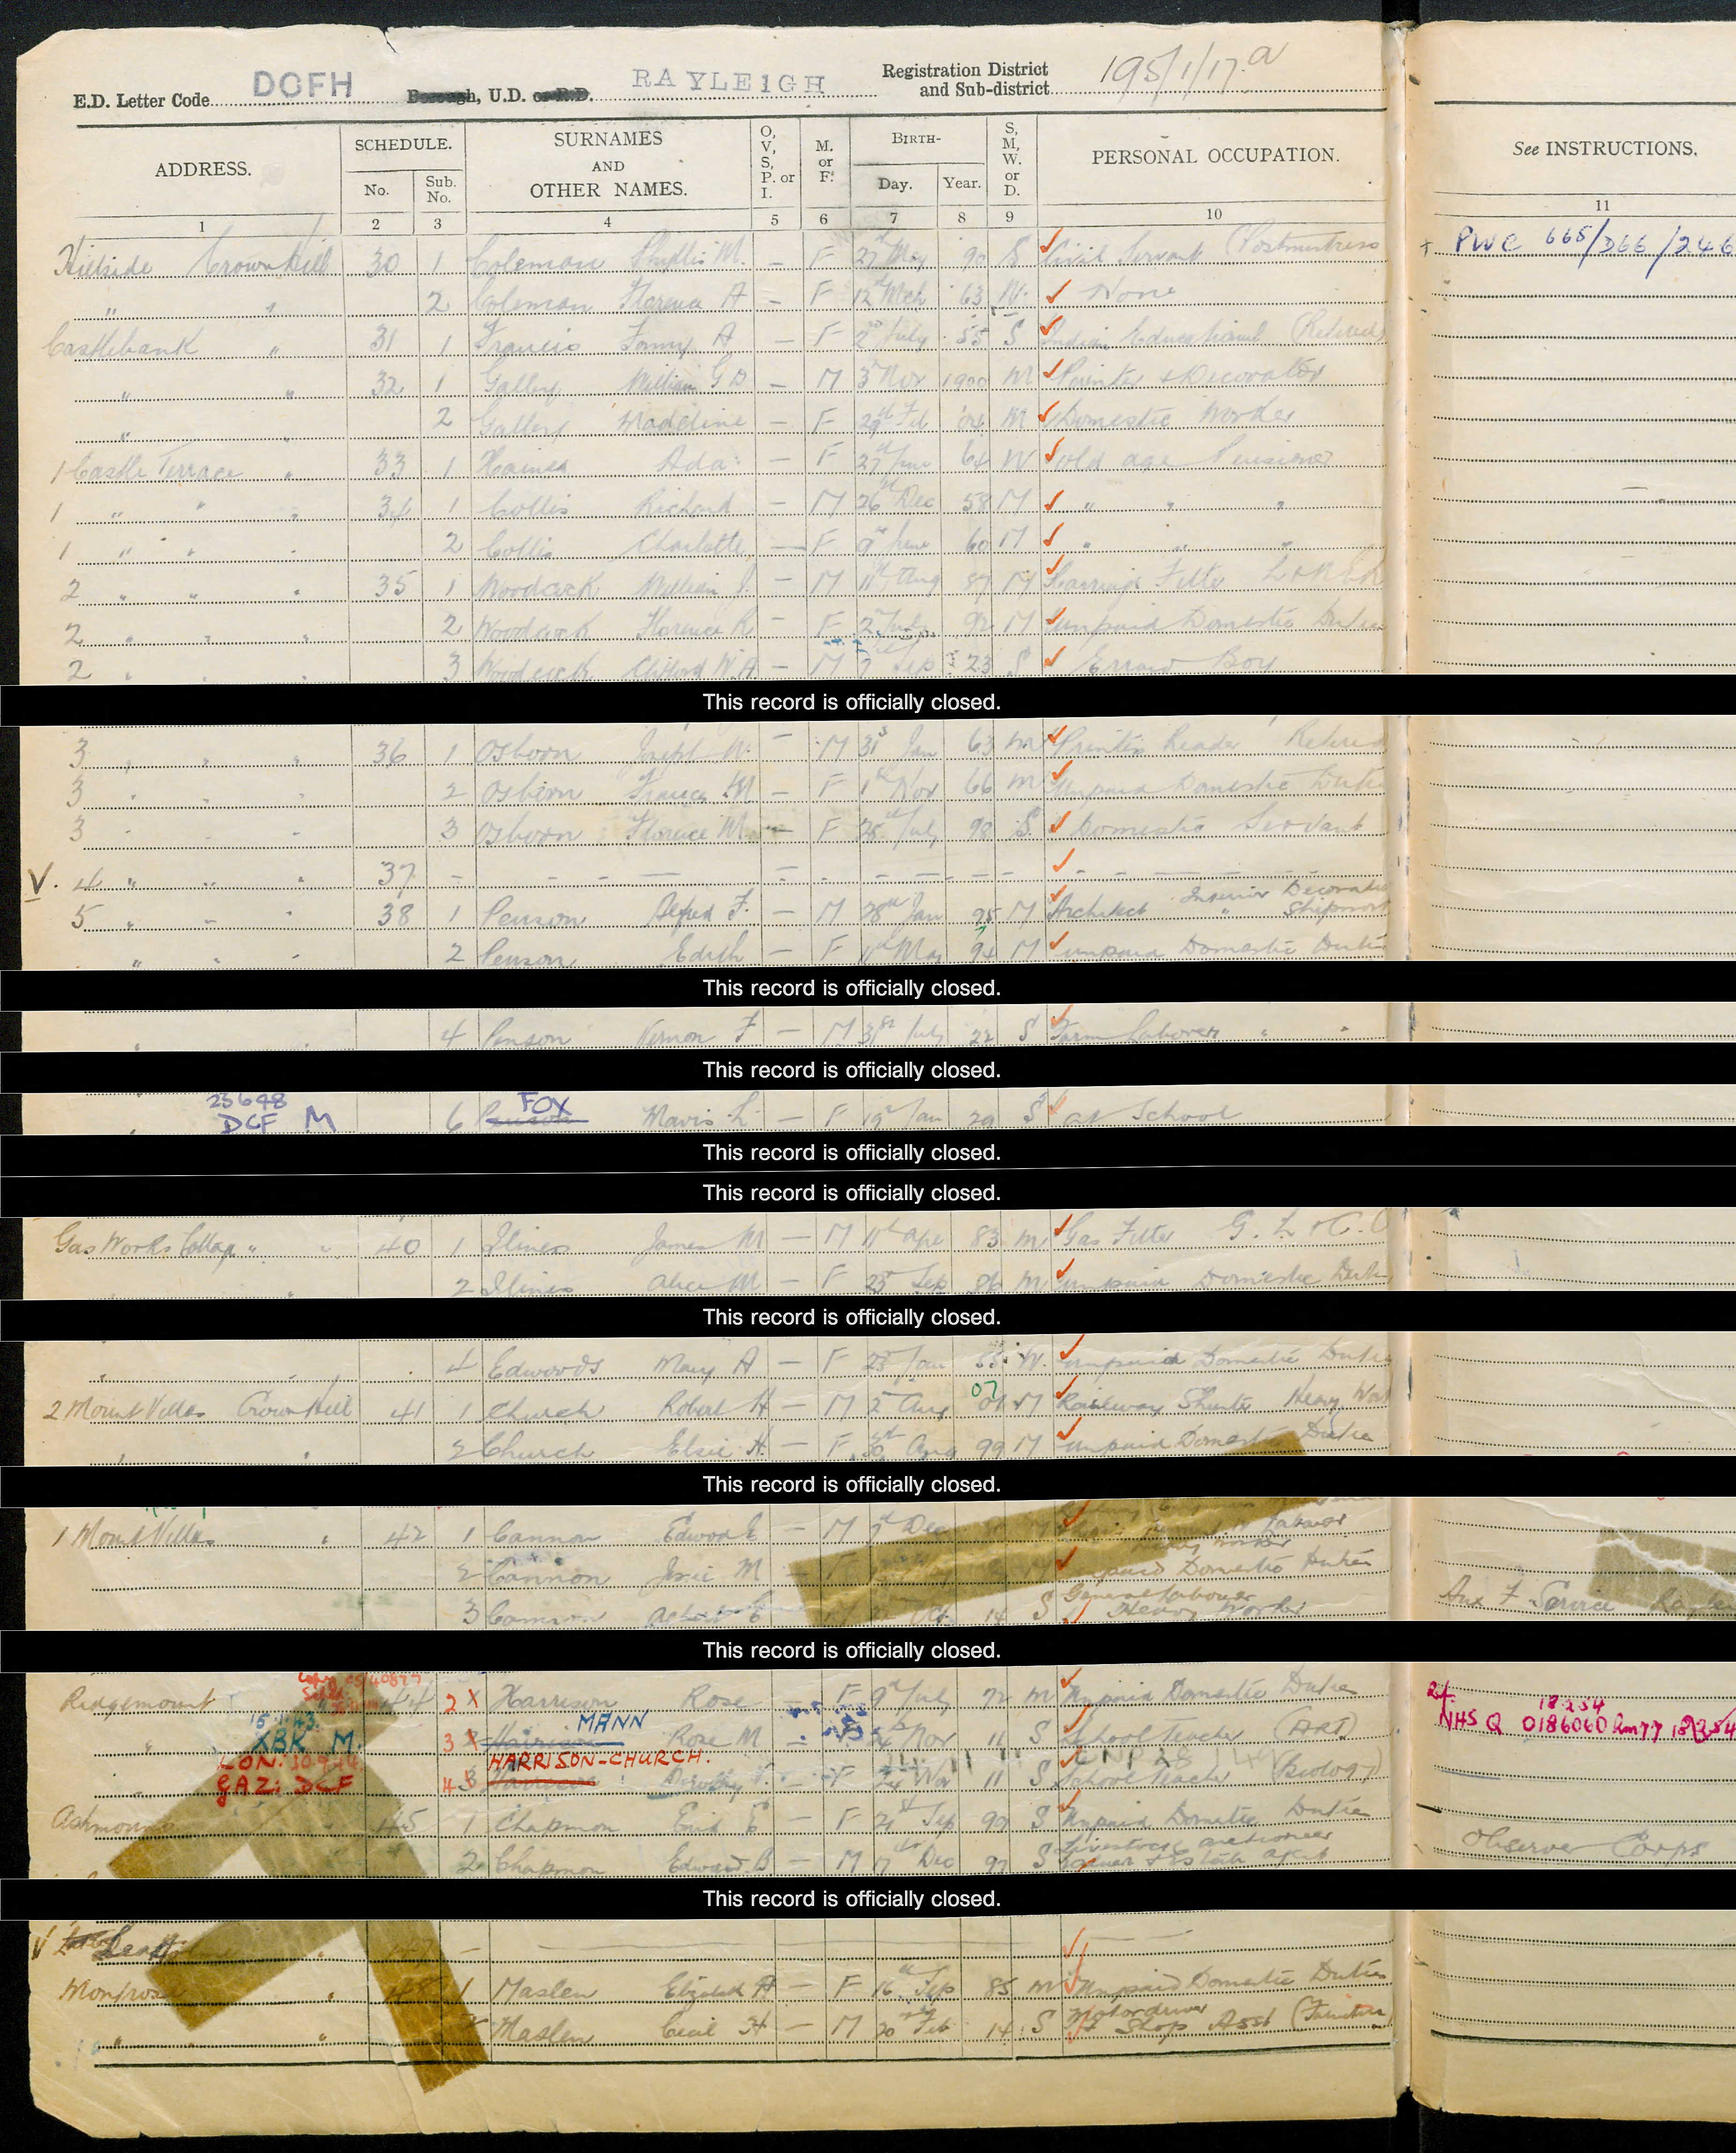 E.D. Letter Code DCFH Borough, U.D. or R.D. RAYLEIGH Registration District and Sub-district 195/1/17.a
ADDRESS. SCHEDULE. No. Sub. No. SURNAMES AND OTHER NAMES. O, V, S, P. or I. M. or F. BIRTH- Day. Year. S, M, W. or D. PERSONAL OCCUPATION. See INSTRUCTIONS.
1 2 3 4 5 6 7 8 9 10 11
Hillside Crown Hill 30 1 Coleman Phyllis M. — F 27 May 90 S Civil Servant (Postmistress + PWC 665/366/246
" " 2 Coleman Florence A — F 12th Mch 63 W. None
Castlebank " 31 1 Francis Fanny A — F 2nd July 55 S Indian Educational (Retired)
" " 32 1 William G D — M 3rd Nov 1900 M Painter & Decorator
" " 2 Madeline — F 29th Feb 04 M Domestic Worker
1 Castle Terrace " 33 1 Haines Ada — F 27th 64 W old age Pensioner
1 " " " 34 1 Collis Richard — M 26th Dec 58 M " " "
1 " " " 2 Collis Charlotte — F 9th June 60 M " " "
2 " " " 35 1 Woodcock William J. — M 11th Aug 87 M Carriage Fitter L & N E R
2 " " " 2 Woodcock Florence R — F 2nd July 92 M unpaid Domestic Duties
2 " " " 3 Woodcock Clifford W.A. — M 7 Sep 23 S Errand Boy
This record is officially closed.
3 " " " 36 1 Osborn Joseph W. — M 31st Jan 63 M Printers Reader Retired
3 " " " 2 Osborn Frances M — F 1st Nov 66 M Unpaid Domestic Duties
3 " " " 3 Osborn Florence M. — F 28th July 98 S. Domestic Servant
V. 4 " " " 37 - - - — - - - - - -
5 " " " 38 1 Penson Alfred F. — M 28th Jan 95 M Architect Interior Decorator " Shipwork
" " " 2 Penson Edith — F 11th May 94 M unpaid Domestic Duties
This record is officially closed.
4 Penson Vernon F — M 31st July 22 S Farm Labourer " "
This record is officially closed.
23648 DCF M 6 Penson FOX Mavis L. — F 19th Jan 29 S at School
This record is officially closed.
This record is officially closed.
Gas Works Cottage " " 40 1 Ilines James M — M 11th Apr 83 M Gas Fitter G. L & C. C
2 Ilines Alice M — F 23rd Sep 86 M unpaid Domestic Duties
This record is officially closed.
4 Edwards Mary A — F 23rd Jan 55 W. unpaid Domestic Duties
2 Mount Villas Crown Hill 41 1 Church Robert H — M 2 Aug 01 07 M Railway Shunter Heavy Work
2 Church Elsie H. — F 30th Aug 99 M unpaid Domestic Duties
This record is officially closed.
1 Mount Villas " 42 1 Cannon Edward E — M 7th Dec Labourer
2 Cannon Jessie M unpaid Domestic Duties
3 Cannon Albert E 14 S General Labourer Heavy Worker Aux F. Service
This record is officially closed.
Ridgemount 44 2 X Harrison Rose — F 9th July 72 M Unpaid Domestic Duties
" 15.1.43 XBK M. 3 Harrison MANN Rose M - 24th Nov 11 S School Teacher (ART) 24. 18.2.54 NHS Q 0186060 Rm77
LON. GAZ: DCF 4 Harrison HARRISON-CHURCH. Dorothy — F 24 Nov 11 S School Teacher (Biology)
Ashmount 45 1 Chapman Enid E — F 21st Sep 90 S Unpaid Domestic Duties
2 Chapman Edward B — M 17th Dec 97 S Livestock auctioneer valuer & Estate agent Observer Corps
This record is officially closed.
V " 47 —
Montrose " 48 1 Maslen Elizabeth A — F 16th Sep 85 M Unpaid Domestic Duties
" " Maslen Cecil H — M 20 Feb 14 S Motor driver Shop Asst (Furniture